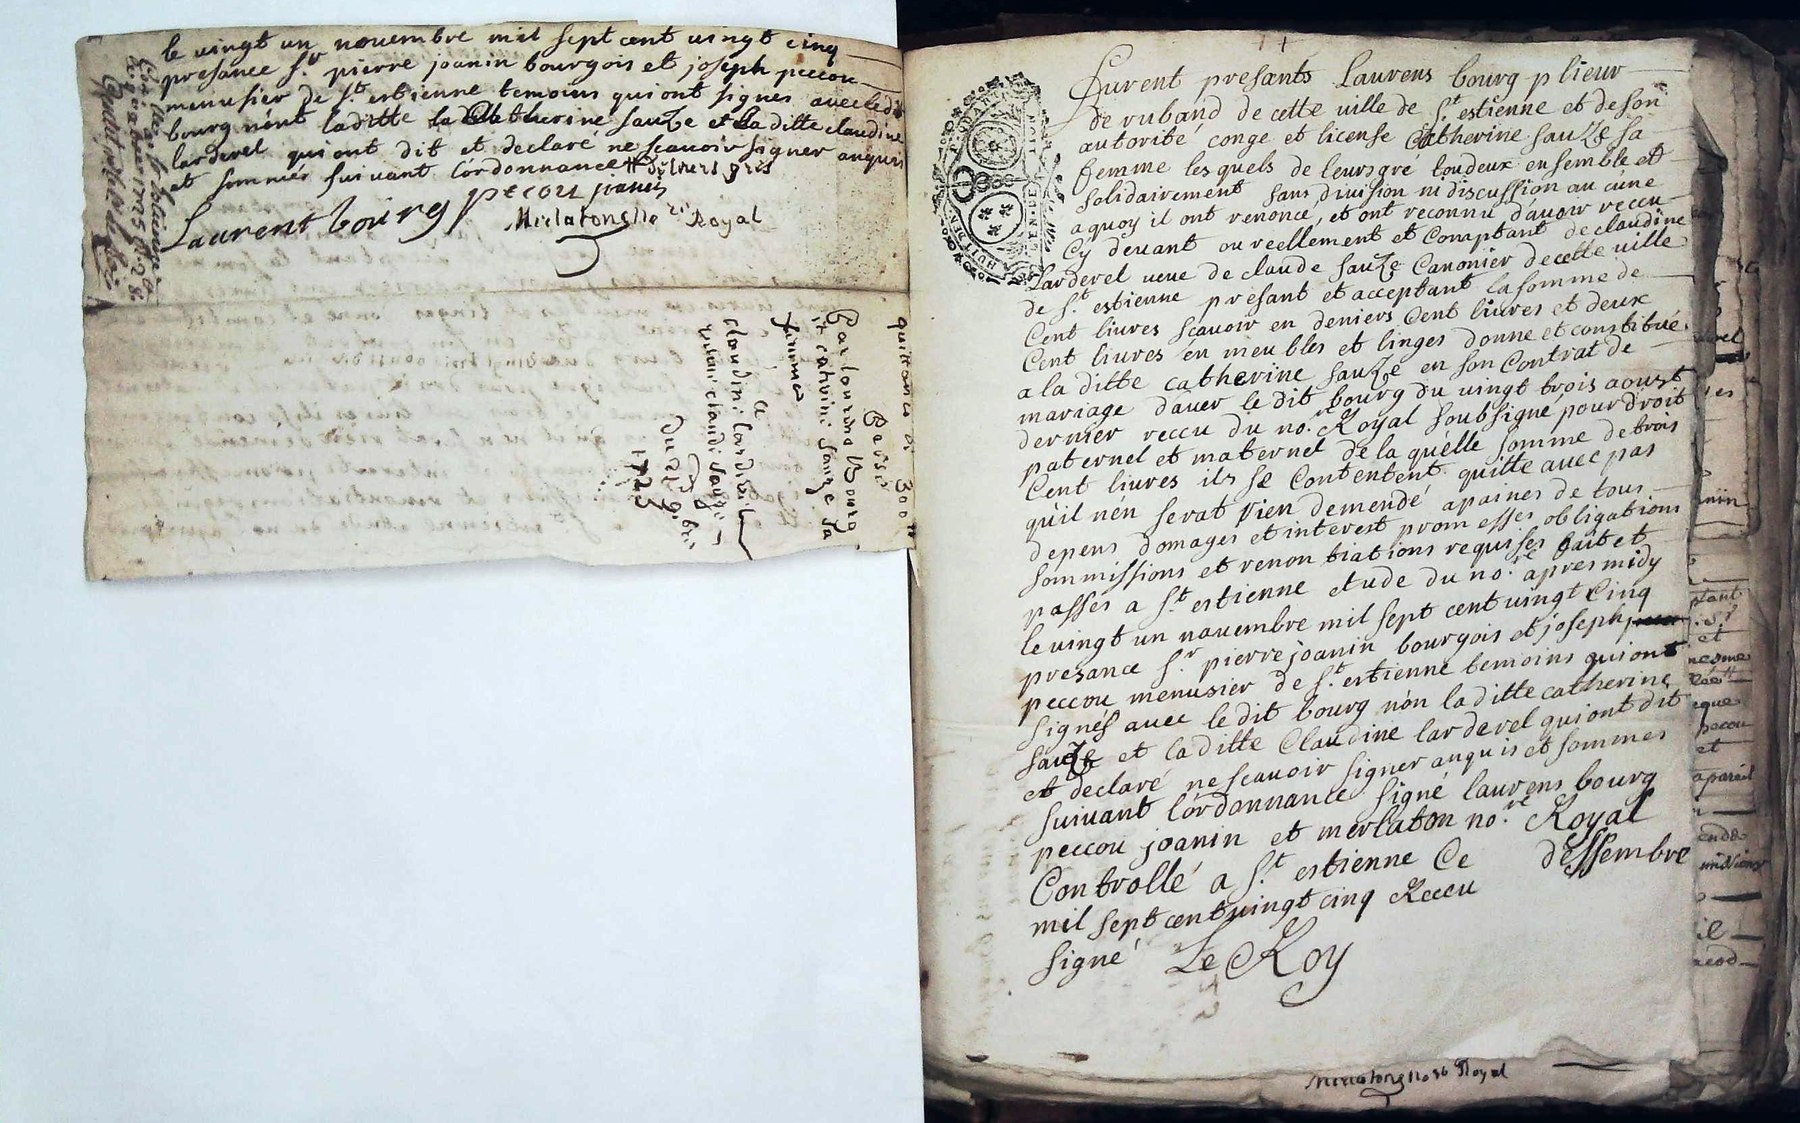 le vingt un novembre mil sept cent vingt cinq
presance Sr. pierre joanin bourgois et joseph peccou
menusier de St. estienne temoins qui ont signés avec le dit
bourg nont laditte Catherine sauze et la ditte claudine
larderel qui ont dit et declaré ne scavoir signer anquis
et sommés suivant lordonnance
peccou joanin
Laurent bourg
Merlaton no re Royal
quittance de 300 ll
Passée
Par lourens Bourg
et cathrine sauze sa
femme
a
claudine lardерel
veuve claude sauze
Du 21 9bre
1725
Furent presants Laurens bourg plieur
de ruband de cette ville de St. estienne et de son
autorité conge et license Catherine sauze sa
femme les quels de leurs gré toudeux ensemble et
solidairement sans division ni discussion au cune
a quoy il ont renoncé, et ont reconnu d'avoir reccu
Cy devant ou reellement et Comptant de claudine
Larderel veue de claude sauze Canonier de cette ville
de St. estienne presant et acceptant la somme de
Cent livres scavoir en deniers Cent livres et deux
Cent livres en meubles et linges donne et constitué
a la ditte catherine sauze en son Contrat de
mariage d'avec le dit bourg du vingt trois aoust
dernier reccu du no. re Royal soubsigné pour droit
paternel et maternel de la quelle somme de trois
Cent livres ils se Contentent quitte avec pas
qu'il n'en serat rien demendé apaines de tous
depens domages et interest promesses obligations
sommissions et renontiations requises fait et
passés a St. estienne etude du no. re apres midy
le vingt un novembre mil sept cent vingt Cinq
presance Sr. pierre joanin bourgois et joseph
peccou menusier de St. estienne temoins qui ont
signés avec le dit bourg nón la ditte catherine
sauze et la ditte Claudine larderel qui ont dit
et declaré ne scavoir signer anquis et sommes
suivant lórdonnance signé laurens bourg
peccou joanin et merlaton no. re Royal
Controllé a St. estienne Ce dessembre
mil sept cent vingt cinq Reccu
signé Le Roy
Merlaton no re Royal